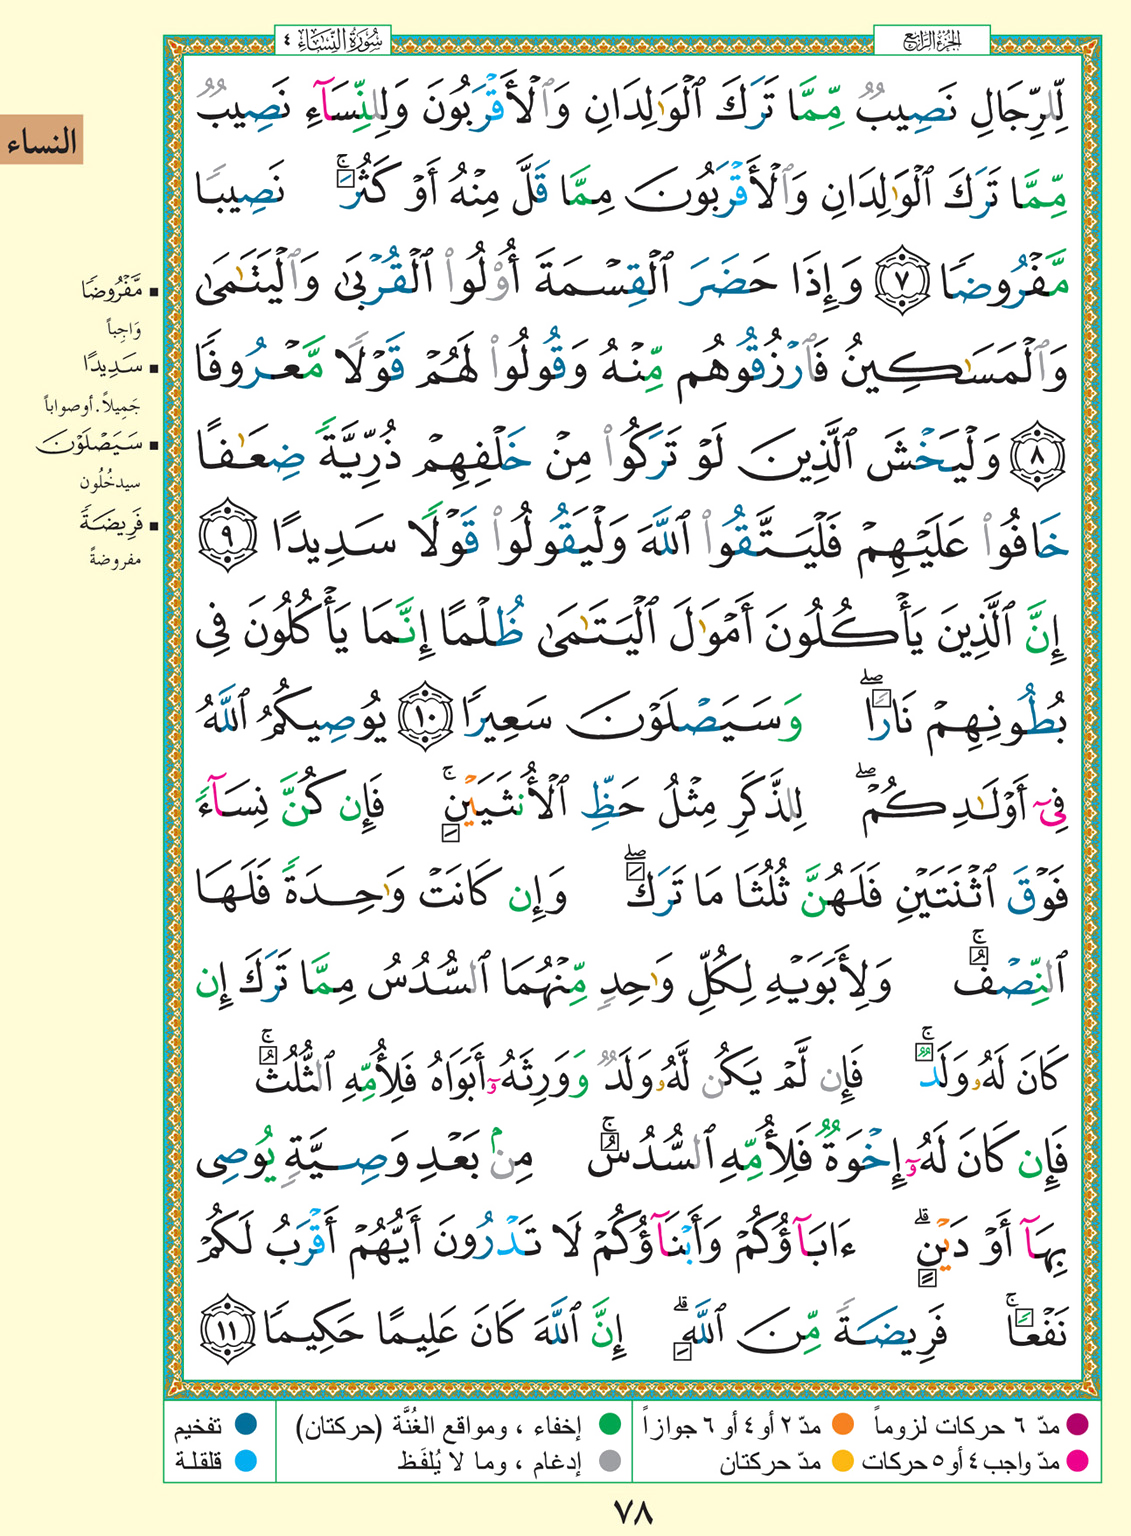 الجزء الرابع
سُورَةُ النِّسَاءِ ٤
النساء
لِّلرِّجَالِ نَصِيبٌ مِّمَّا تَرَكَ ٱلْوَٰلِدَانِ وَٱلْأَقْرَبُونَ وَلِلنِّسَآءِ نَصِيبٌ
مِّمَّا تَرَكَ ٱلْوَٰلِدَانِ وَٱلْأَقْرَبُونَ مِمَّا قَلَّ مِنْهُ أَوْ كَثُرَ ۚ نَصِيبًا
مَّفْرُوضًا ٧ وَإِذَا حَضَرَ ٱلْقِسْمَةَ أُو۟لُوا۟ ٱلْقُرْبَىٰ وَٱلْيَتَٰمَىٰ
وَٱلْمَسَٰكِينُ فَٱرْزُقُوهُم مِّنْهُ وَقُولُوا۟ لَهُمْ قَوْلًا مَّعْرُوفًا
٨ وَلْيَخْشَ ٱلَّذِينَ لَوْ تَرَكُوا۟ مِنْ خَلْفِهِمْ ذُرِّيَّةً ضِعَٰفًا
خَافُوا۟ عَلَيْهِمْ فَلْيَتَّقُوا۟ ٱللَّهَ وَلْيَقُولُوا۟ قَوْلًا سَدِيدًا ٩
إِنَّ ٱلَّذِينَ يَأْكُلُونَ أَمْوَٰلَ ٱلْيَتَٰمَىٰ ظُلْمًا إِنَّمَا يَأْكُلُونَ فِى
بُطُونِهِمْ نَارًا ۖ وَسَيَصْلَوْنَ سَعِيرًا ١٠ يُوصِيكُمُ ٱللَّهُ
فِىٓ أَوْلَٰدِكُمْ ۖ لِلذَّكَرِ مِثْلُ حَظِّ ٱلْأُنثَيَيْنِ ۚ فَإِن كُنَّ نِسَآءً
فَوْقَ ٱثْنَتَيْنِ فَلَهُنَّ ثُلُثَا مَا تَرَكَ ۖ وَإِن كَانَتْ وَٰحِدَةً فَلَهَا
ٱلنِّصْفُ ۚ وَلِأَبَوَيْهِ لِكُلِّ وَٰحِدٍ مِّنْهُمَا ٱلسُّدُسُ مِمَّا تَرَكَ إِن
كَانَ لَهُۥ وَلَدٌ ۚ فَإِن لَّمْ يَكُن لَّهُۥ وَلَدٌ وَوَرِثَهُۥٓ أَبَوَاهُ فَلِأُمِّهِ ٱلثُّلُثُ ۚ
فَإِن كَانَ لَهُۥٓ إِخْوَةٌ فَلِأُمِّهِ ٱلسُّدُسُ ۚ مِنۢ بَعْدِ وَصِيَّةٍ يُوصِى
بِهَآ أَوْ دَيْنٍ ۗ ءَابَآؤُكُمْ وَأَبْنَآؤُكُمْ لَا تَدْرُونَ أَيُّهُمْ أَقْرَبُ لَكُمْ
نَفْعًا ۚ فَرِيضَةً مِّنَ ٱللَّهِ ۗ إِنَّ ٱللَّهَ كَانَ عَلِيمًا حَكِيمًا ١١
■ مَّفْرُوضًا
وَاجِباً
■ سَدِيدًا
جَمِيلاً. أو صواباً
■ سَيَصْلَوْنَ
سيدخُلُون
■ فَرِيضَةً
مفروضةً
مدّ ٦ حركات لزوماً
مدّ ٢ أو ٤ أو ٦ جوازاً
إخفاء ، ومواقع الغُنَّة (حركتان)
تفخيم
مدّ واجب ٤ أو ٥ حركات
مدّ حركتان
إدغام ، وما لا يُلفَظ
قلقلة
٧٨